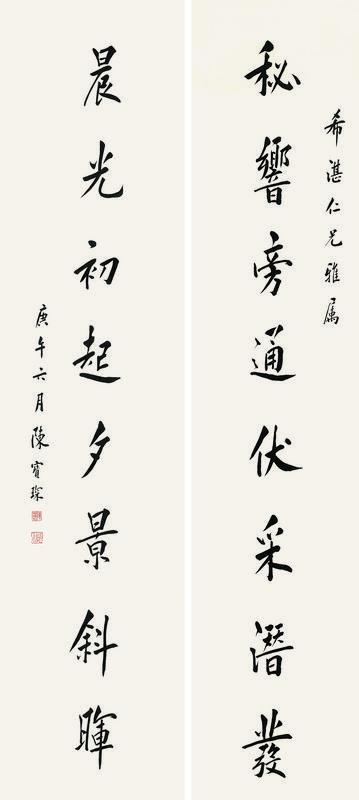 希湛仁兄雅属
秘響旁通伏采潛發
晨光初起夕景斜暉
庚午六月陳寶琛